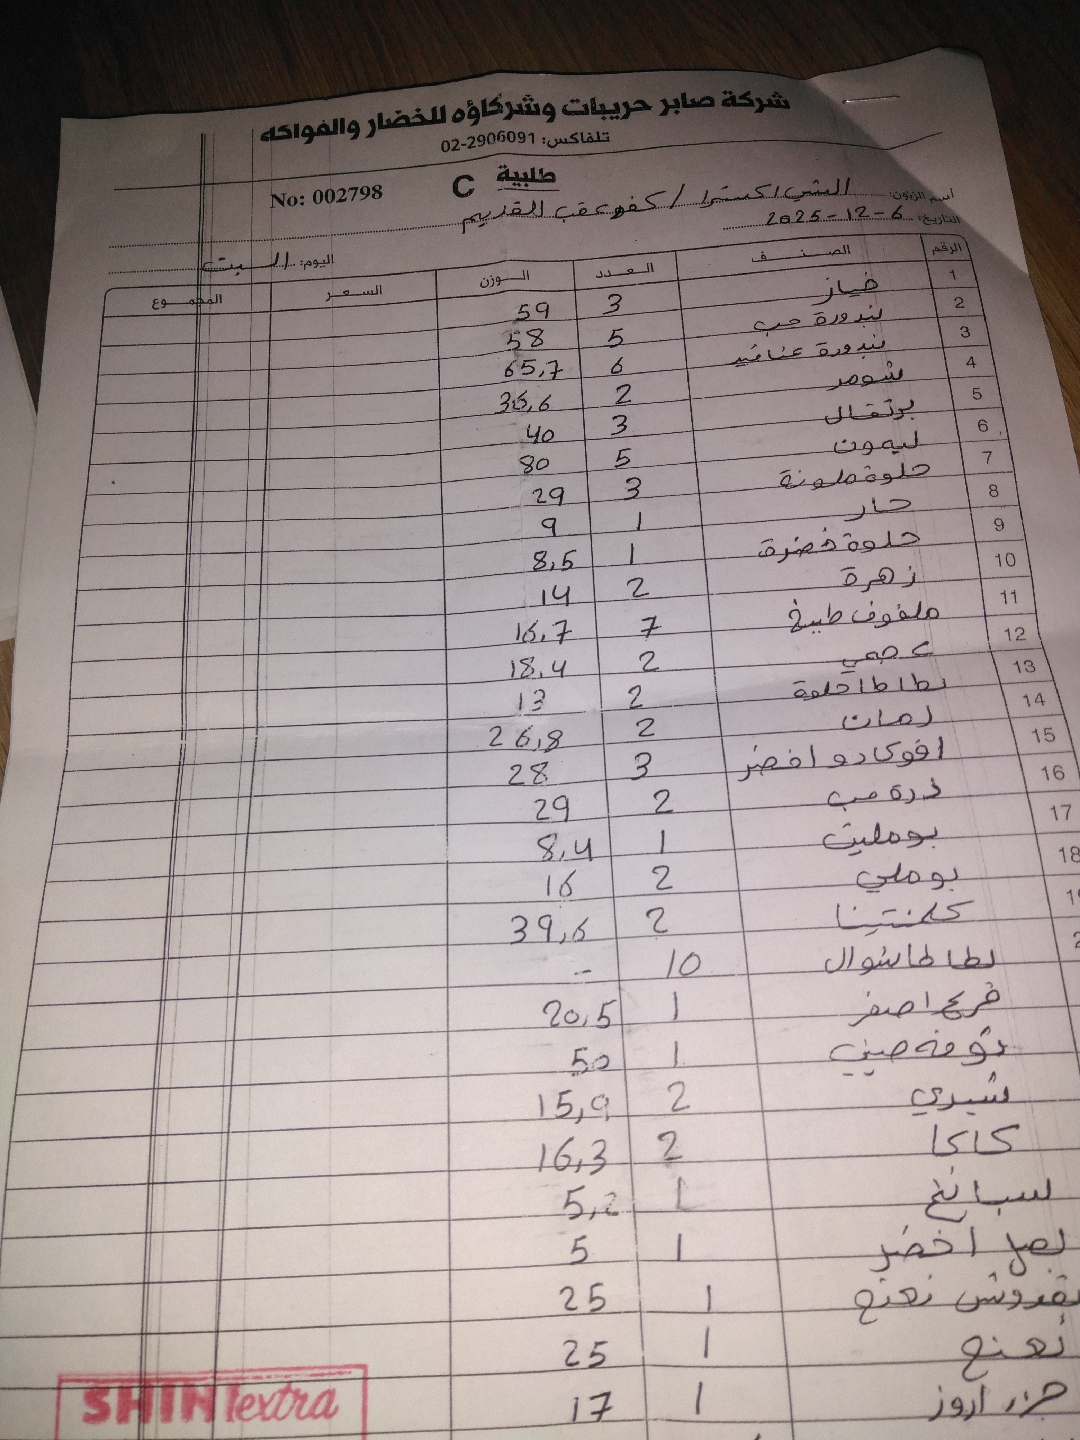 شركة صابر حريبات وشركاؤه للخضار والفواكه
تلفاكس: 02-2906091
طلبية
No: 002798 C
اسم الزبون: الشني اكسترا / كفر عقب القديم
التاريخ: 6-12-2025
اليوم: السبت
الرقم الصنف العدد الوزن السعر المجموع
1 خيار 3 59
2 بندورة حب 5 58
3 بندورة عناقيد 6 65,7
4 شومر 2 36,6
5 برتقال 3 40
6 ليمون 5 80
7 حلوة ملونة 3 29
8 حار 1 9
9 حلوة خضرة 1 8,5
10 زهرة 2 14
11 ملفوف طبيخ 7 16,7
12 عجمي 2 18,4
13 بطاطا حلوة 2 13
14 رمان 2 26,8
15 افوكادو اخضر 3 28
16 ذرة حب 2 29
17 بومليت 1 8,4
18 بوملي 2 16
كلمنتينا 2 39,6
بطاطا شوال 10 --
قرع اصفر 1 20,5
صيني 1 50
شيري 2 15,9
كاكا 2 16,3
سبانخ 1 5,2
بصل اخضر 1 5
بقدونس نعنع 1 25
نعنع 1 25
جزر اروز 1 17
SHINI extra